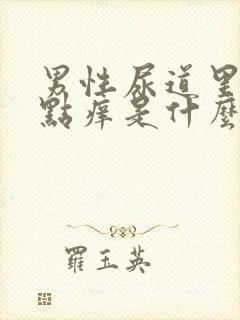 男性尿道里
點痒是什麼
羅玉英